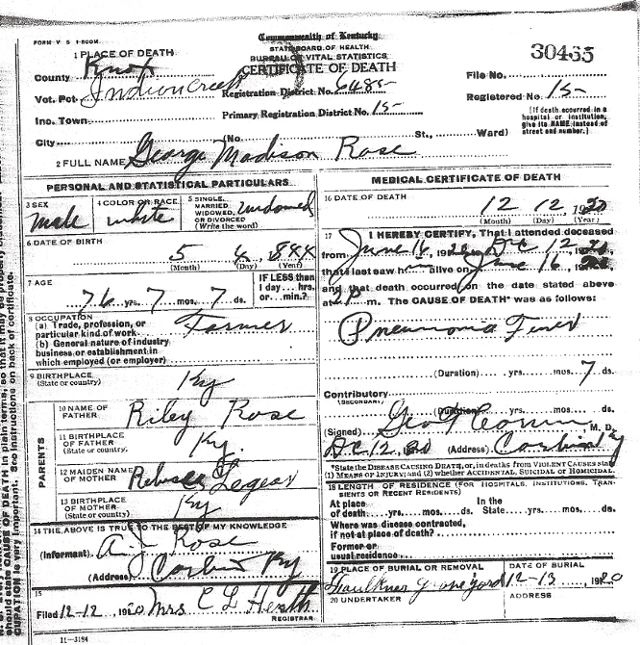 FORM V S 1-500M.
Commonwealth of Kentucky
STATE BOARD OF HEALTH
BUREAU OF VITAL STATISTICS
CERTIFICATE OF DEATH
30465
1 PLACE OF DEATH
County Knox
File No.
Vot. Pct. Indian Creek
Registration District No. 6485-
Registered No. 15-
Inc. Town
Primary Registration District No. 15-
[If death occurred in a hospital or institution, give its NAME instead of street and number.]
City (No. St., Ward)
2 FULL NAME George Madison Rose
PERSONAL AND STATISTICAL PARTICULARS
3 SEX
Male
4 COLOR OR RACE
White
5 SINGLE, MARRIED, WIDOWED, OR DIVORCED
(Write the word)
Widowed
6 DATE OF BIRTH
5 4, 1844
(Month) (Day) (Year)
7 AGE
76 yrs. 7 mos. 7 ds.
IF LESS than 1 day... hrs. or... min.?
8 OCCUPATION
(a) Trade, profession, or particular kind of work
Farmer
(b) General nature of industry business or establishment in which employed (or employer)
9 BIRTHPLACE
(State or country)
Ky
PARENTS
10 NAME OF FATHER
Riley Rose
11 BIRTHPLACE OF FATHER
(State or country)
Ky.
12 MAIDEN NAME OF MOTHER
Rebecca
13 BIRTHPLACE OF MOTHER
(State or country)
Ky
14 THE ABOVE IS TRUE TO THE BEST OF MY KNOWLEDGE
(Informant) A. J. Rose
(Address) Corbin Ky
15
Filed 12-12, 1920 Mrs C L Heath
REGISTRAR
11-3184
MEDICAL CERTIFICATE OF DEATH
16 DATE OF DEATH
12 12, 1920
(Month) (Day) (Year)
17 I HEREBY CERTIFY, That I attended deceased
from June 16, 1920, Dec 12, 1920,
that I last saw h alive on June 16, 192
and that death occurred on the date stated above
at P m. The CAUSE OF DEATH* was as follows:
Pneumonia Fever
(Duration) yrs. mos. 7 ds.
Contributory
(SECONDARY)
(Duration) yrs. mos. ds.
(Signed) Geo M. D.
Dec. 12, 20 (Address) Corbin Ky
*State the DISEASE CAUSING DEATH, or, in deaths from VIOLENT CAUSES state (1) MEANS OF INJURY; and (2) whether ACCIDENTAL, SUICIDAL OR HOMICIDAL.
18 LENGTH OF RESIDENCE (FOR HOSPITALS, INSTITUTIONS, TRANSIENTS OR RECENT RESIDENTS)
At place of death yrs. mos. ds. In the State yrs. mos. ds.
Where was disease contracted, if not at place of death?
Former or usual residence
19 PLACE OF BURIAL OR REMOVAL
Faulkner Grave Yard
DATE OF BURIAL
12-13, 1920
20 UNDERTAKER
ADDRESS
should state CAUSE OF DEATH in plain terms, so that it may be properly
CUPATION is very important. See instructions on back of certificate.